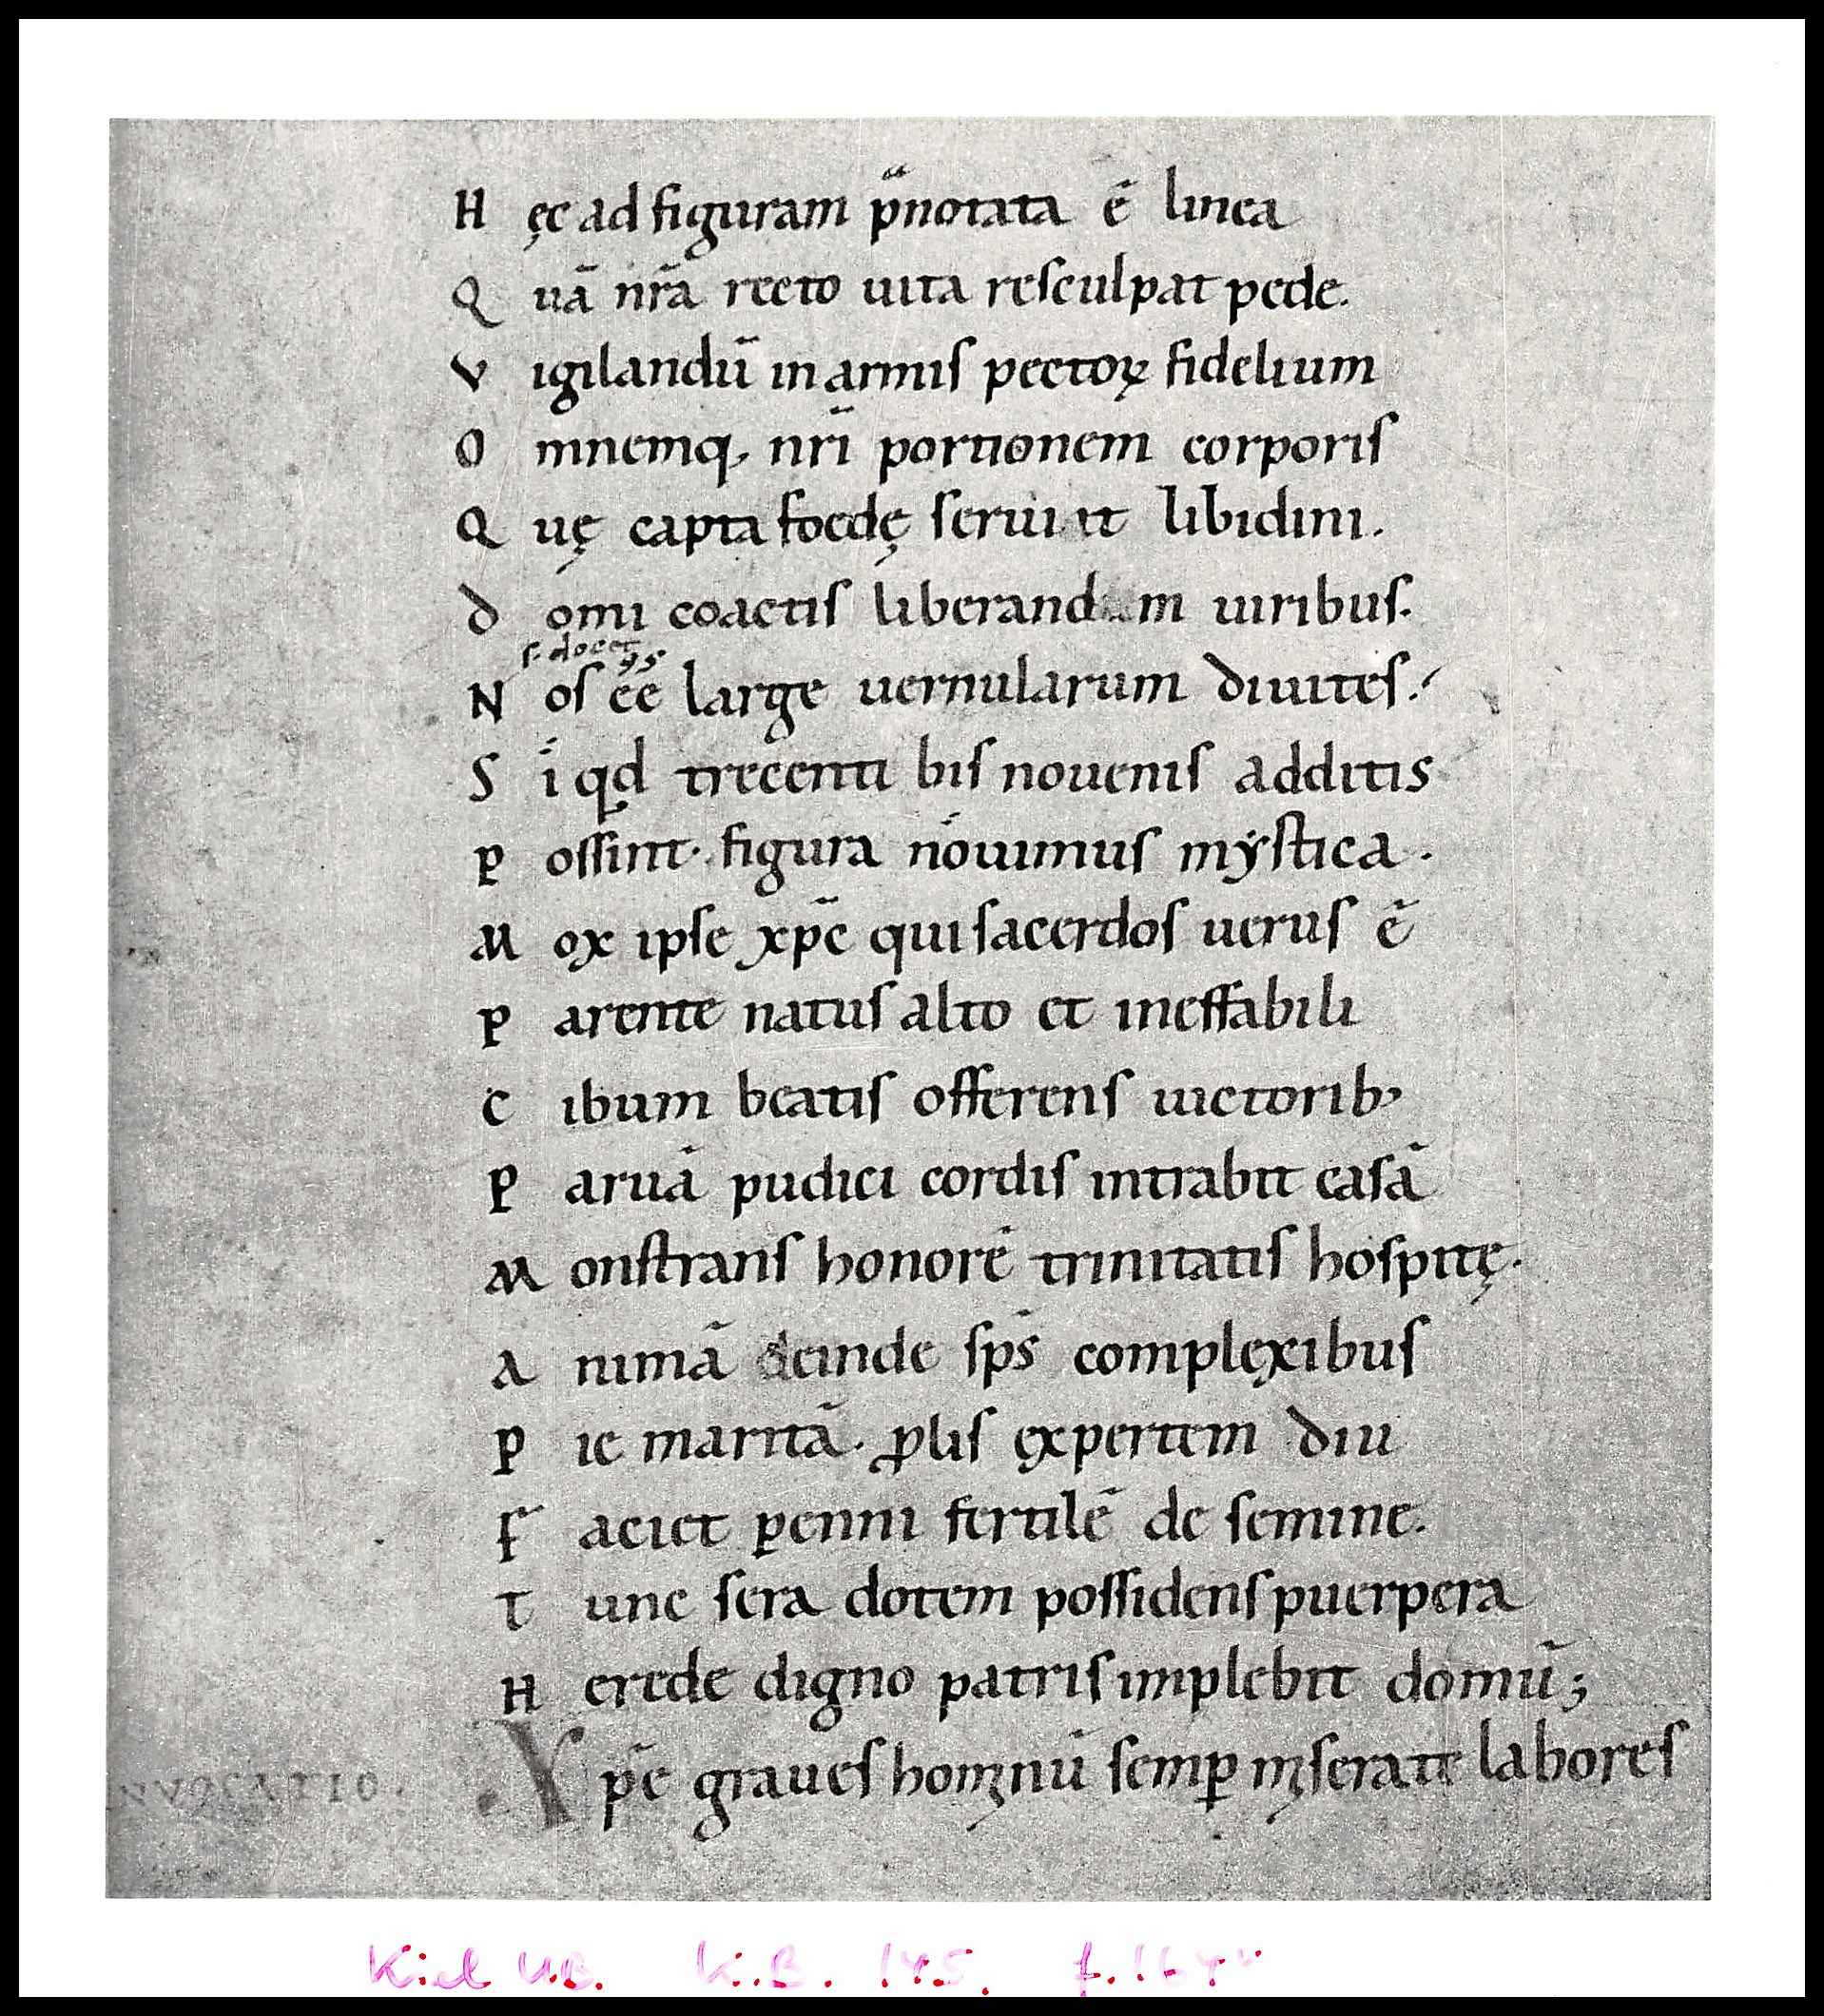 H ęc ad figuram p̄notata ē linea
Q uā nr̄a recto uita resculpat pede.
V igilandū in armis pectoꝝ fidelium
O mnemq, nr̄i portionem corporis
Q uę capta foedę seruiit libidini.
D omi coactis liberandam uiribus.
s. docet
N os ēē large uernularum diuites.
S i qd trecenti bis nouenis additis
P ossint. figura nouimus mystica.
M ox ipse xp̄c qui sacerdos uerus ē
P arente natus alto et ineffabili
C ibum beatis offerens uictorib;
P aruā pudici cordis intrabit casā
M onstrans honorē trinitatis hospitę.
A nimā deinde sp̄s complexibus
P ie maritā. ꝓlis expertem diu
F aciet ꝑenni fertilē de semine.
T unc sera dotem possidens puerpera
H erede digno patris implebit domū;
NVOCATIO. X pē graues hominū semꝑ miserate labores
Kiel UB. K.B. 145. f. 164v